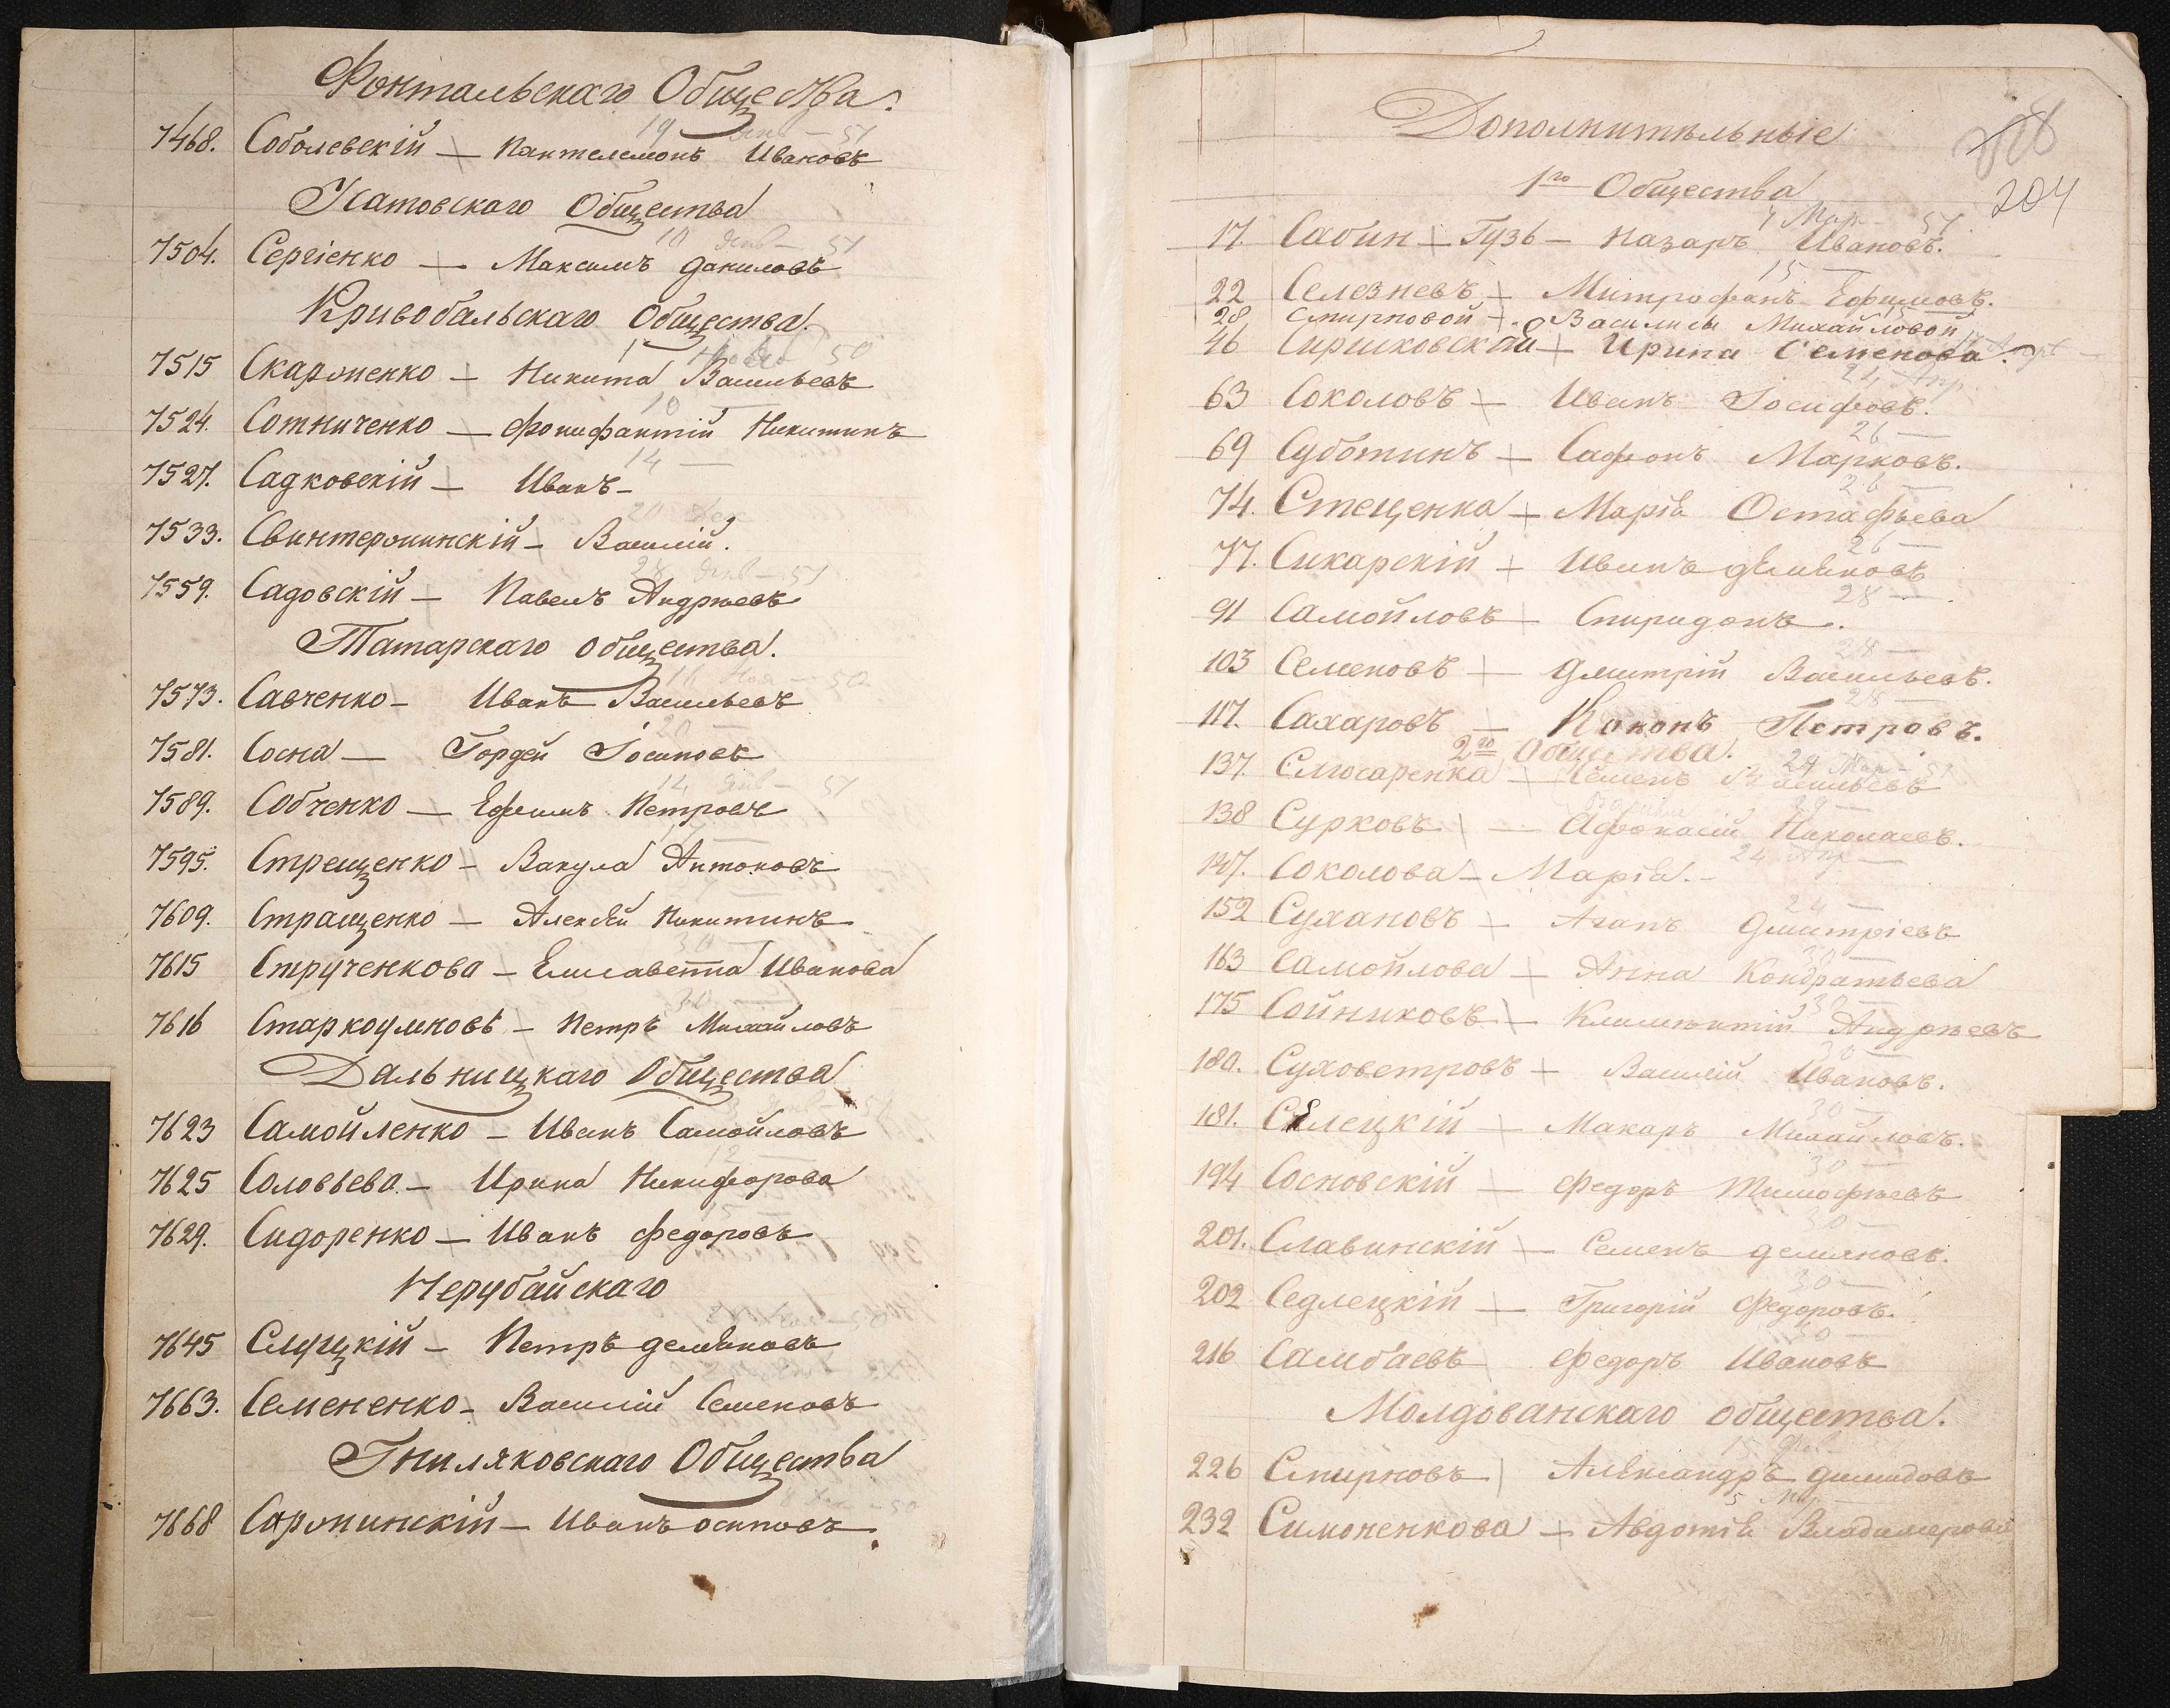 Фонтальскаго Общества.
19 Янв — 51
7468. Соболевскій — Пантелемонъ Ивановъ
Усатовскаго Общества
10 Янв — 51
7504. Сергіенко — Максимъ Даниловъ
Кривобальскаго Общества.
1 Нояб 50
7515 Скарженко — Никита Васильевъ
10 —
7524. Сотниченко — Фонифантій Никитинъ
14 —
7527. Садковскій — Иванъ —
20 Дек
7533. Свинтержинскій — Василій.
28 Янв — 51
7559. Садовскій — Павелъ Андреевъ
Татарскаго общества.
16 Ноя — 50
7573. Савченко — Иванъ Васильевъ
20 —
7581. Сосна — Гордей Іосиповъ
14 Янв — 51
7589. Собченко — Ефимъ Петровъ
7595. Стрещенко — Вакула Антоновъ
7609. Стращенко — Алексѣй Никитинъ
30 —
7615 Струченкова — Елисаветта Иванова
30 —
7616 Старкоумовъ — Петръ Михайловъ
Дальницкаго Общества
7623 Самойленко — Иванъ Самойловъ
12 —
7625 Соловьева — Ирина Никифорова
15 —
7629. Сидоренко — Иванъ Федоровъ
Нерубайскаго
7645 Слуцкій — Петръ Демяновъ
7663. Семененко — Василій Семеновъ
Гниляковскаго Общества
8 Дек — 50
7668 Саржинскій — Иванъ Осиповъ.
Дополнительные
204
1го Общества
4 Мар — 51
17. Савин — Гузь — Назаръ Ивановъ.
15 —
22 Селезневъ — Митрофанъ Ефимовъ.
28 Смирновой — Василисы Михайловой
46 Ирина Семенова.
24 Апр
63 Соколовъ — Иванъ Іосифовъ.
26 —
69 Субботинъ — Сафонъ Марковъ.
26 —
74. Стеценка — Марія Остафьева
26 —
77. Сикарскій — Иванъ Демьяновъ
28 —
91 Самойловъ — Спиридонъ.
28 —
103 Семеновъ — Дмитрій Васильевъ.
28 —
117. Сахаровъ — Кононъ Петровъ.
2го Общества.
24 Мар — 51
137. Слюсаренка — Семенъ Васильевъ
29 —
138 Сурковъ — Афонасій Николаевъ.
24 Апр —
147. Соколова — Марія. —
24 —
152 Сухановъ — Агапъ Дмитріевъ
30 —
163 Самойлова — Анна Кондратьева
30 —
175 Сойниковъ — Климентій Андреевъ
30 —
180. Суховетровъ — Василій Ивановъ.
30 —
181. Селецкій — Макаръ Михайловъ.
30 —
194 Сосновскій — Федоръ Тимофѣевъ
30 —
201. Славинскій — Семенъ Демяновъ.
30 —
202 Седлецкій — Григорій Федоровъ.
30 —
216 Самбаевъ Федоръ Ивановъ
Молдованскаго общества.
15 Фев —
226 Смирновъ Александръ Демидовъ
5 Мар —
232 Симоненкова — Авдотія Владимерова